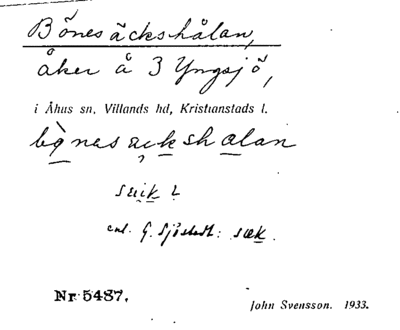 Bönesäckshålan,
åker å 3 Yngsjö,
i Åhus sn, Villands hd, Kristianstads l.
bọ̀nesạckshalan
suik ?
enl. G. Sjöstedt: sæk.
Nr 5487.
John Svensson. 1933.